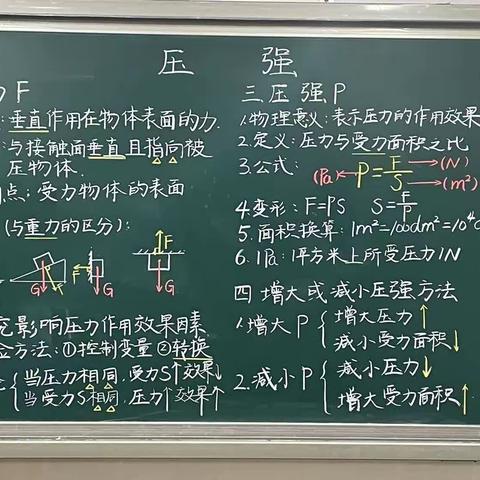 压 强
力F
:垂直作用在物体表面的力.
:与接触面垂直且指向被
压物体.
点:受力物体的表面
(与重力的区分):
G F G F G
究影响压力作用效果因素
方法:①控制变量 ②转换
当压力相同,受力S↑效果↓
当受力S相同,压力↑效果↑
三.压强P
1.物理意义:表示压力的作用效果
2.定义:压力与受力面积之比
3.公式: (Pa)←P=F/S→(N) →(m²)
4.变形:F=PS S=F/P
5.面积换算:1m²=100dm²=10⁴c
6.1Pa:1平方米上所受压力1N
四 增大或减小压强方法
1.增大P{增大压力↑
减小受力面积↓
2.减小P{减小压力↓
增大受力面积↑